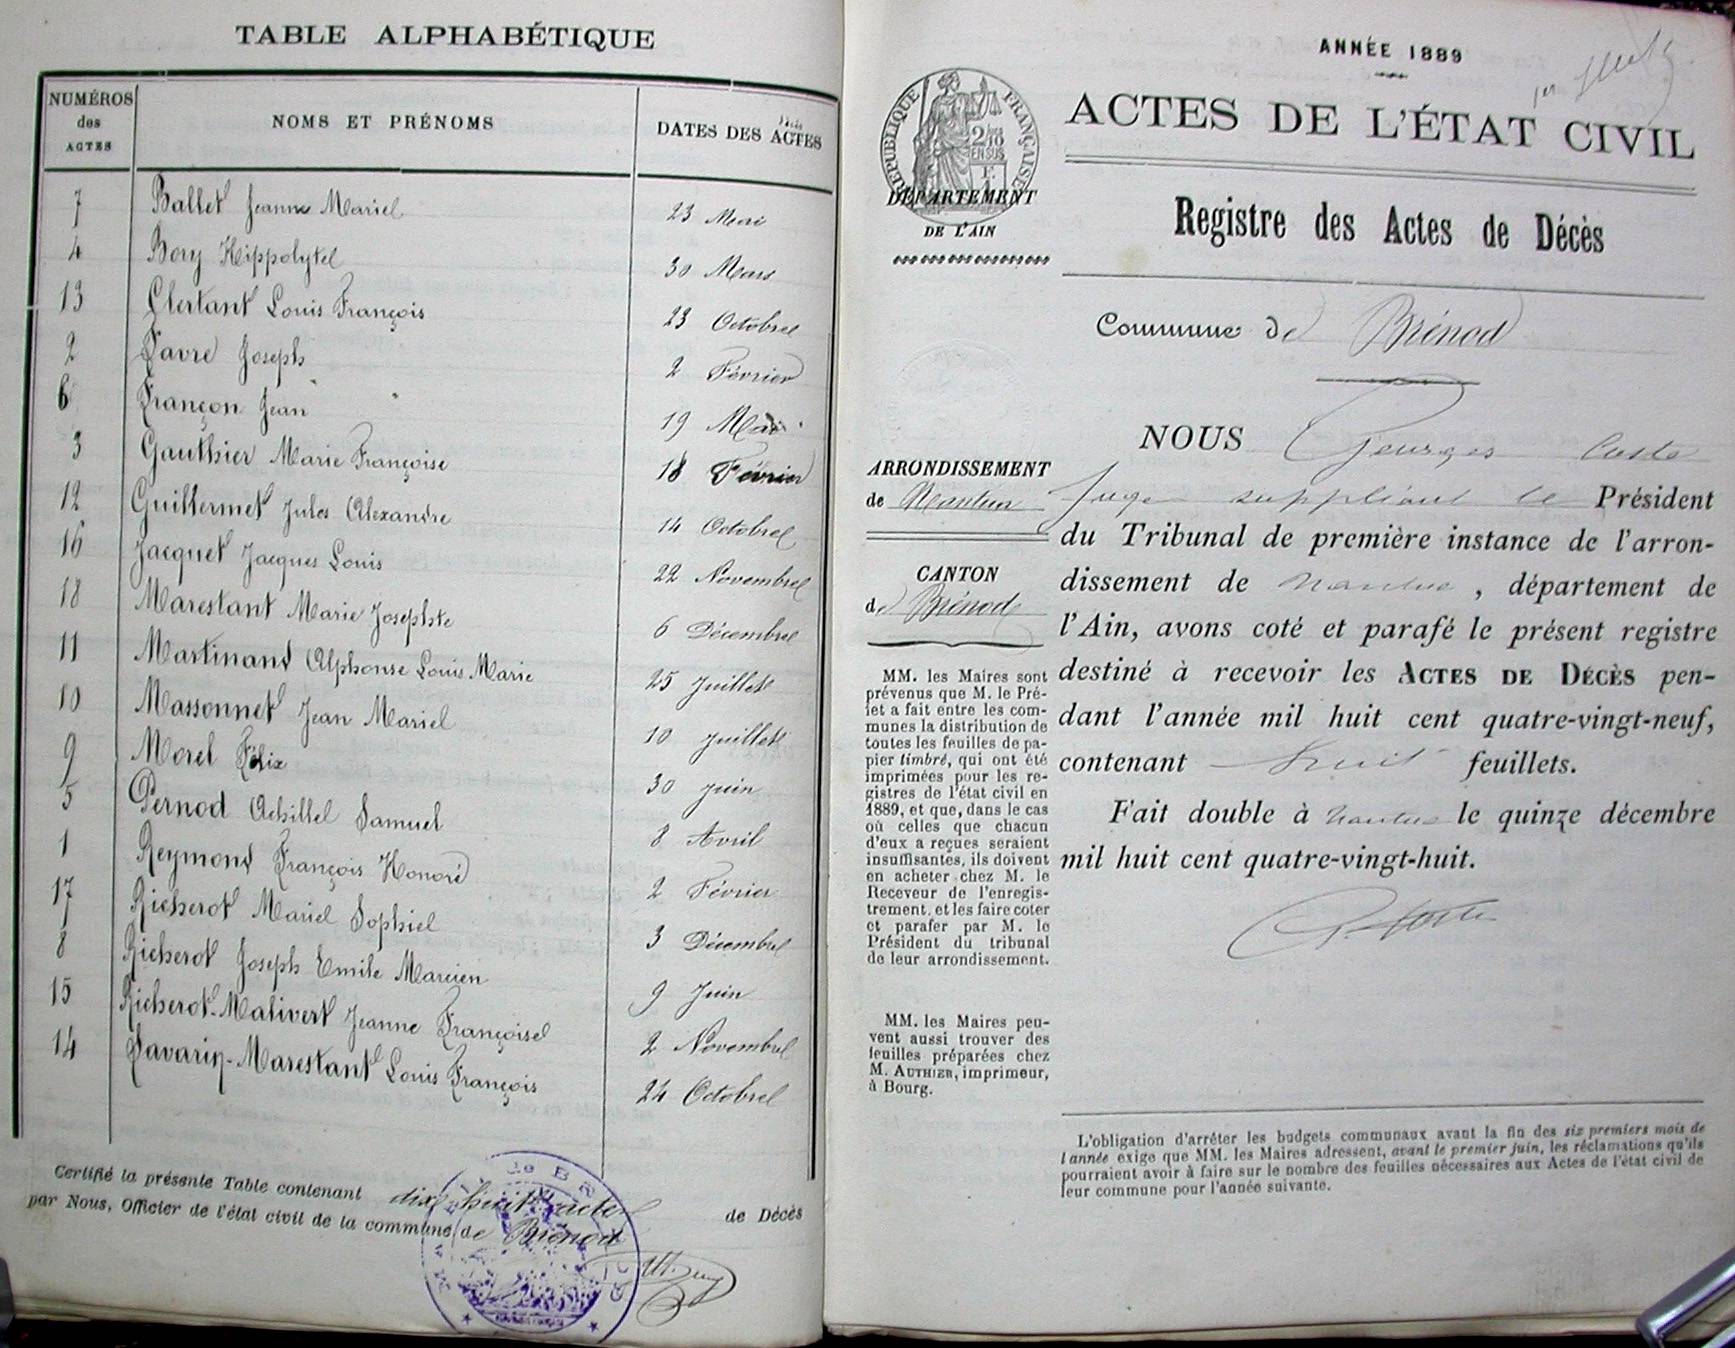 TABLE ALPHABÉTIQUE
NUMÉROS des ACTES
NOMS ET PRÉNOMS
DATES DES ACTES
7 Ballet Jeanne Marie 23 Mai
4 Bory Hippolyte 30 Mars
13 Clertant Louis François 23 Octobre
2 Favre Joseph 2 Février
6 Françon Jean 19 Mai
3 Gauthier Marie Françoise 18 Février
12 Guillermet Jules Alexandre 14 Octobre
16 Jacquet Jacques Louis 22 Novembre
18 Marestant Marie Josephte 6 Décembre
11 Martinand Alphonse Louis Marie 25 Juillet
10 Massonnet Jean Marie 10 Juillet
9 Morel Félix 30 Juin
5 Pernod Achille Samuel 8 Avril
1 Reymond François Honoré 2 Février
17 Richerot Marie Sophie 3 Décembre
8 Richerot Joseph Emile Marcien 9 Juin
15 Richerot-Mativert Jeanne Françoise 2 Novembre
14 Savarin-Marestant Louis François 24 Octobre
Certifié la présente Table contenant dix huit actes de Décès
par Nous, Officier de l'état civil de la commune de Brénod
ANNÉE 1889
RÉPUBLIQUE FRANÇAISE
2/10 EN SUS
DÉPARTEMENT
DE L'AIN
ACTES DE L'ÉTAT CIVIL
Registre des Actes de Décès
Commune de Brénod
ARRONDISSEMENT
de Nantua
CANTON
de Brénod
MM. les Maires sont
prévenus que M. le Pré-
fet a fait entre les com-
munes la distribution de
toutes les feuilles de pa-
pier timbré, qui ont été
imprimées pour les re-
gistres de l'état civil en
1889, et que, dans le cas
où celles que chacun
d'eux a reçues seraient
insuffisantes, ils doivent
en acheter chez M. le
Receveur de l'enregis-
trement, et les faire coter
et parafer par M. le
Président du tribunal
de leur arrondissement.
MM. les Maires peu-
vent aussi trouver des
feuilles préparées chez
M. AUTHIER, imprimeur,
à Bourg.
NOUS Georges Coste
Juge suppléant le Président
du Tribunal de première instance de l'arron-
dissement de Nantua, département de
l'Ain, avons coté et parafé le présent registre
destiné à recevoir les ACTES DE DÉCÈS pen-
dant l'année mil huit cent quatre-vingt-neuf,
contenant huit feuillets.
Fait double à Nantua le quinze décembre
mil huit cent quatre-vingt-huit.
G. Coste
L'obligation d'arrêter les budgets communaux avant la fin des six premiers mois de
l'année exige que MM. les Maires adressent, avant le premier juin, les réclamations qu'ils
pourraient avoir à faire sur le nombre des feuilles nécessaires aux Actes de l'état civil de
leur commune pour l'année suivante.